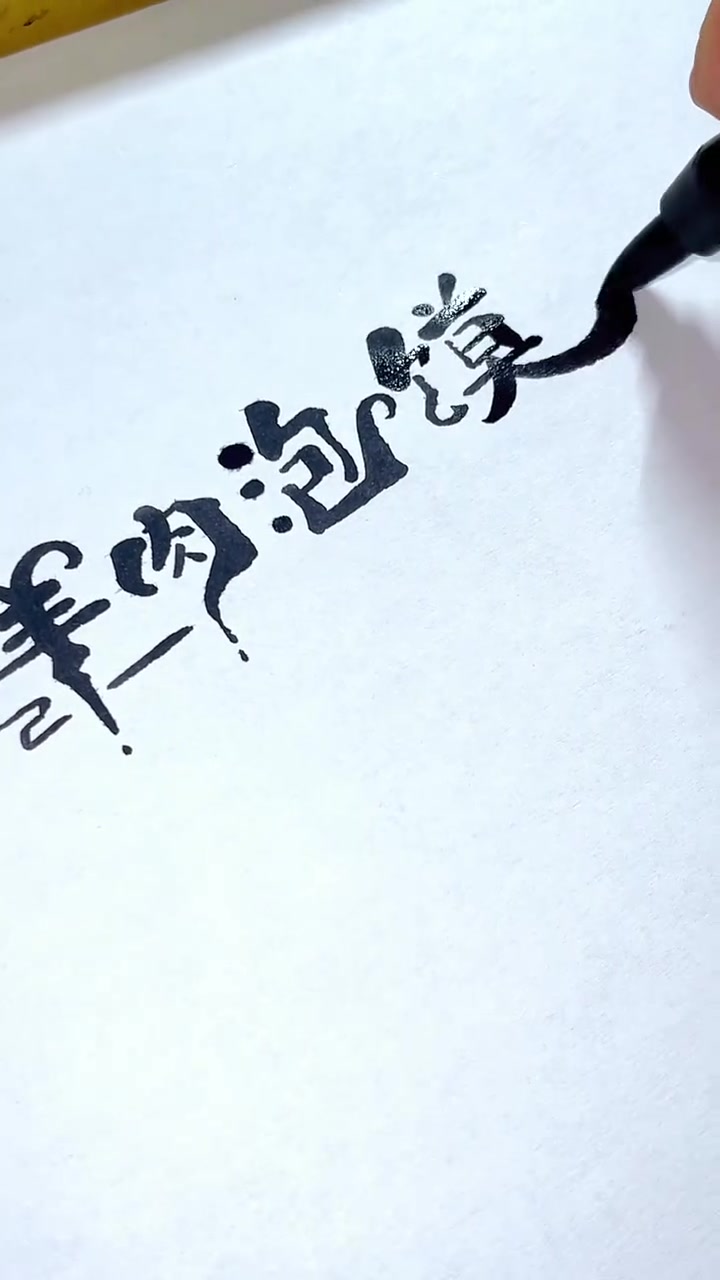 羊肉泡馍